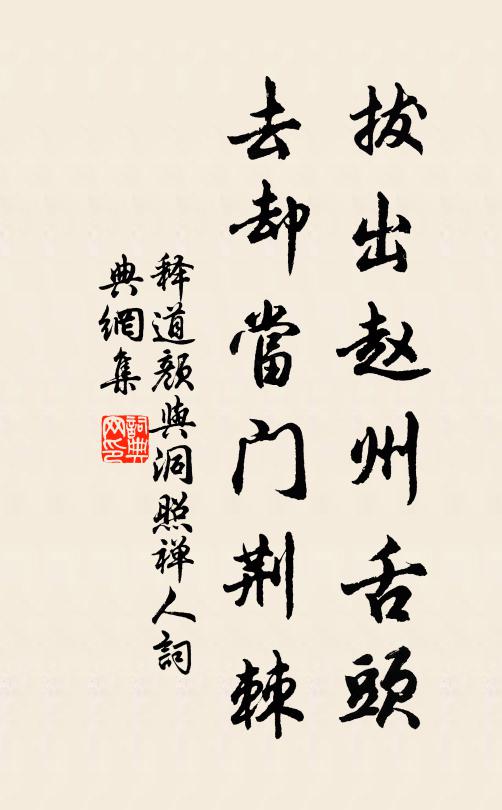 拔出赵州舌頭
去却當門荆棘
释道颜與洞照禅人詞
典網集
詞典
网印